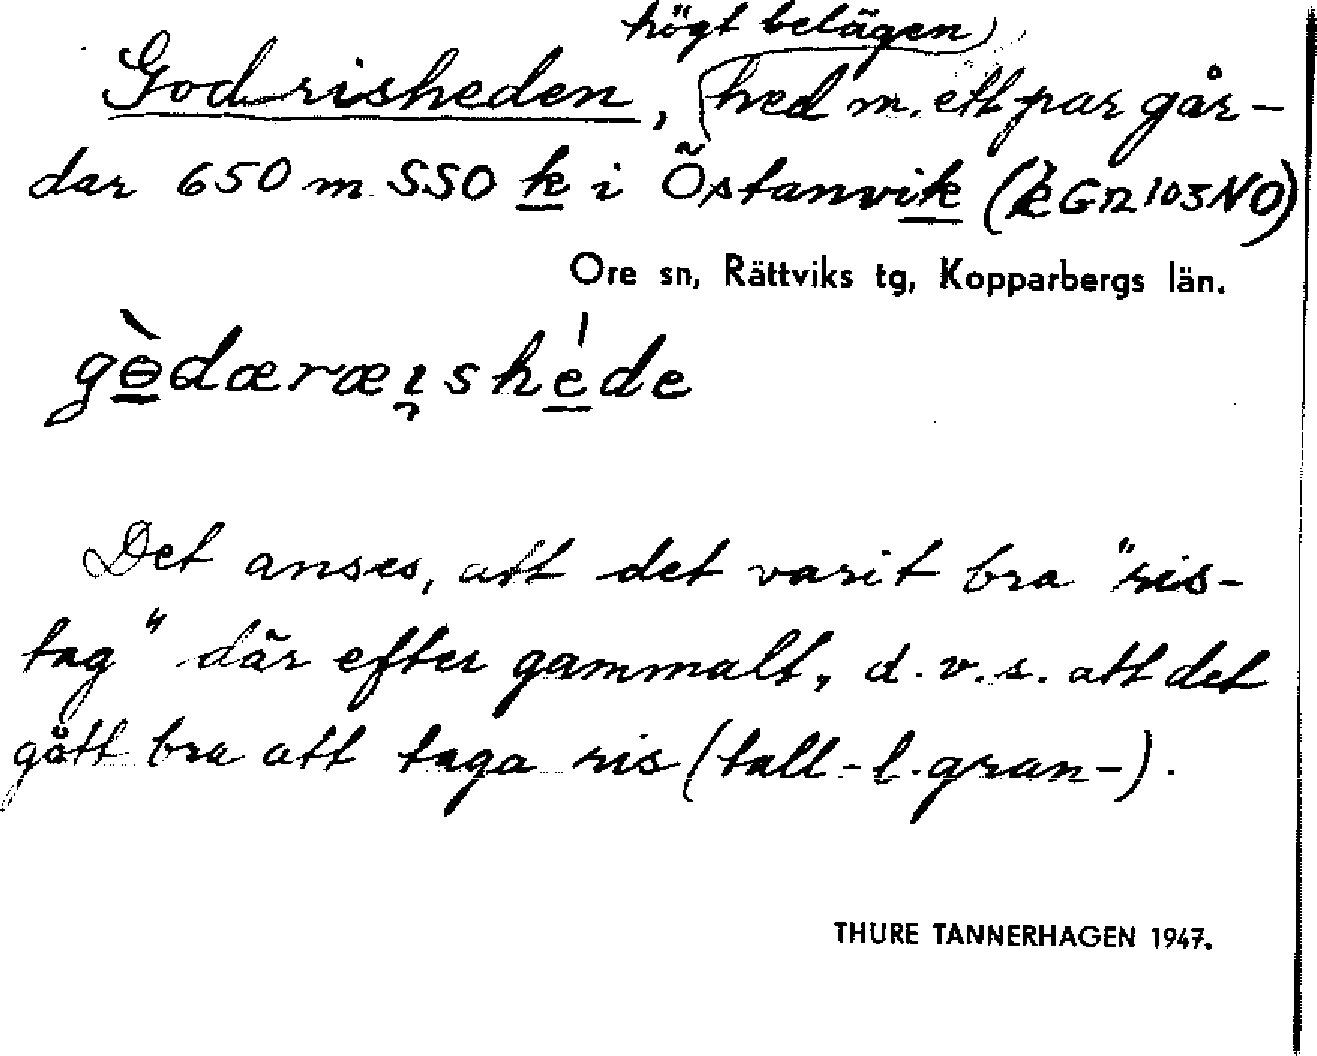 högt belägen
Godrisheden, hed m. ett par går-
dar 650 m SSO k i Östanvik (k GR 103 NO)
Ore sn, Rättviks tg, Kopparbergs län.
gɵ̀dæræɩshéde
Det anses, att det varit bra "ris-
tag" där efter gammalt, d.v.s. att det
gått bra att taga ris (tall- l. gran-).
THURE TANNERHAGEN 1947.